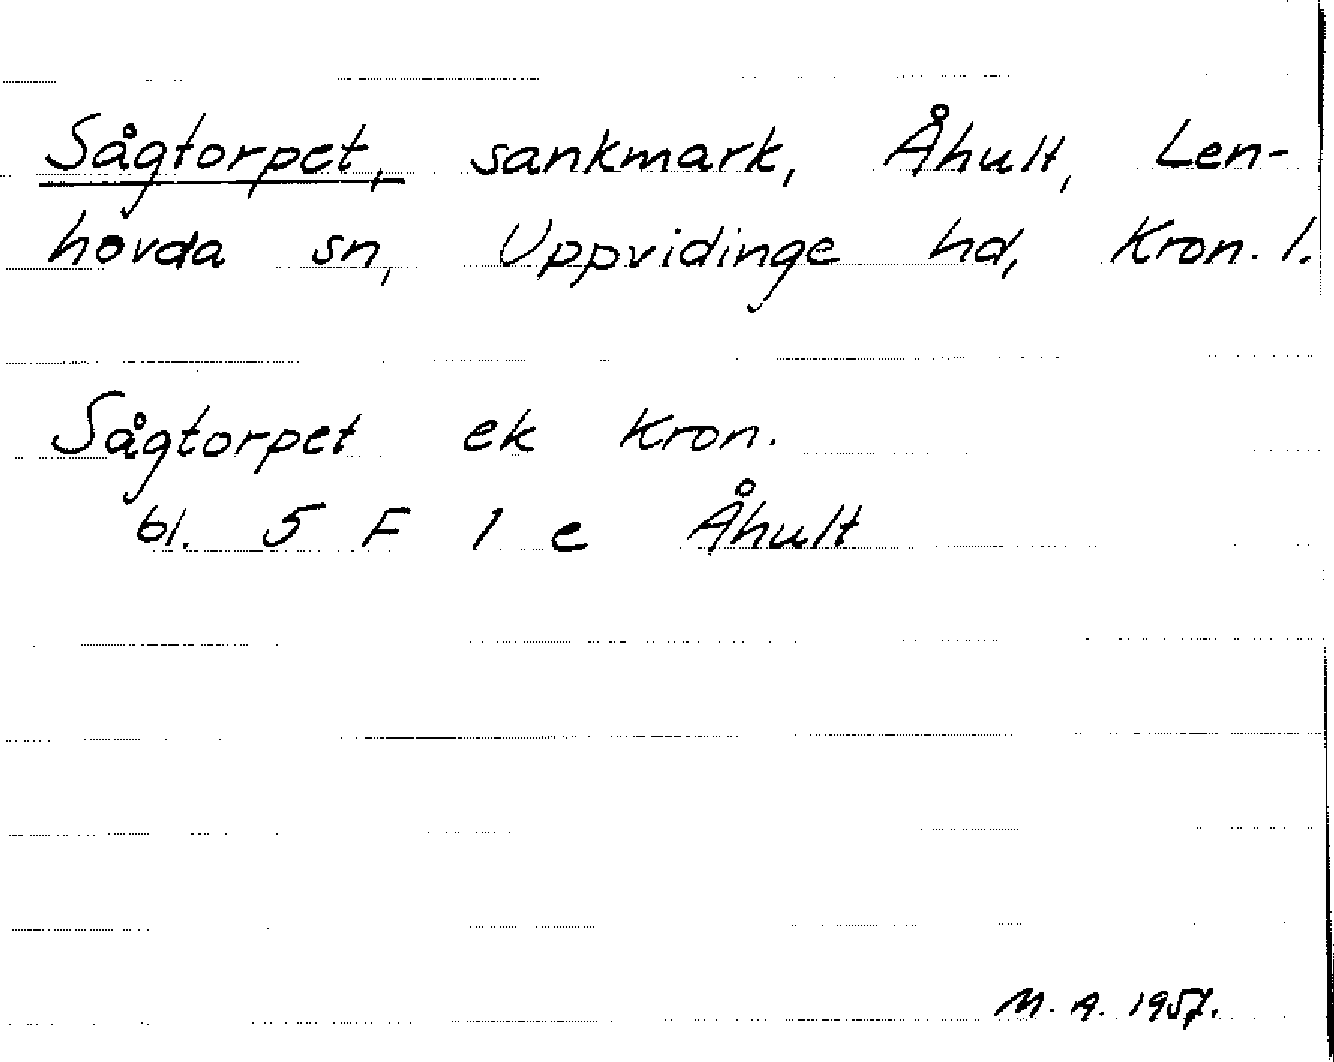 Sågtorpet, sankmark, Åhult, Len-
hovda sn, Uppvidinge hd, Kron. l.
Sågtorpet ek Kron.
bl. 5 F 1 e Åhult
M. A. 1957.